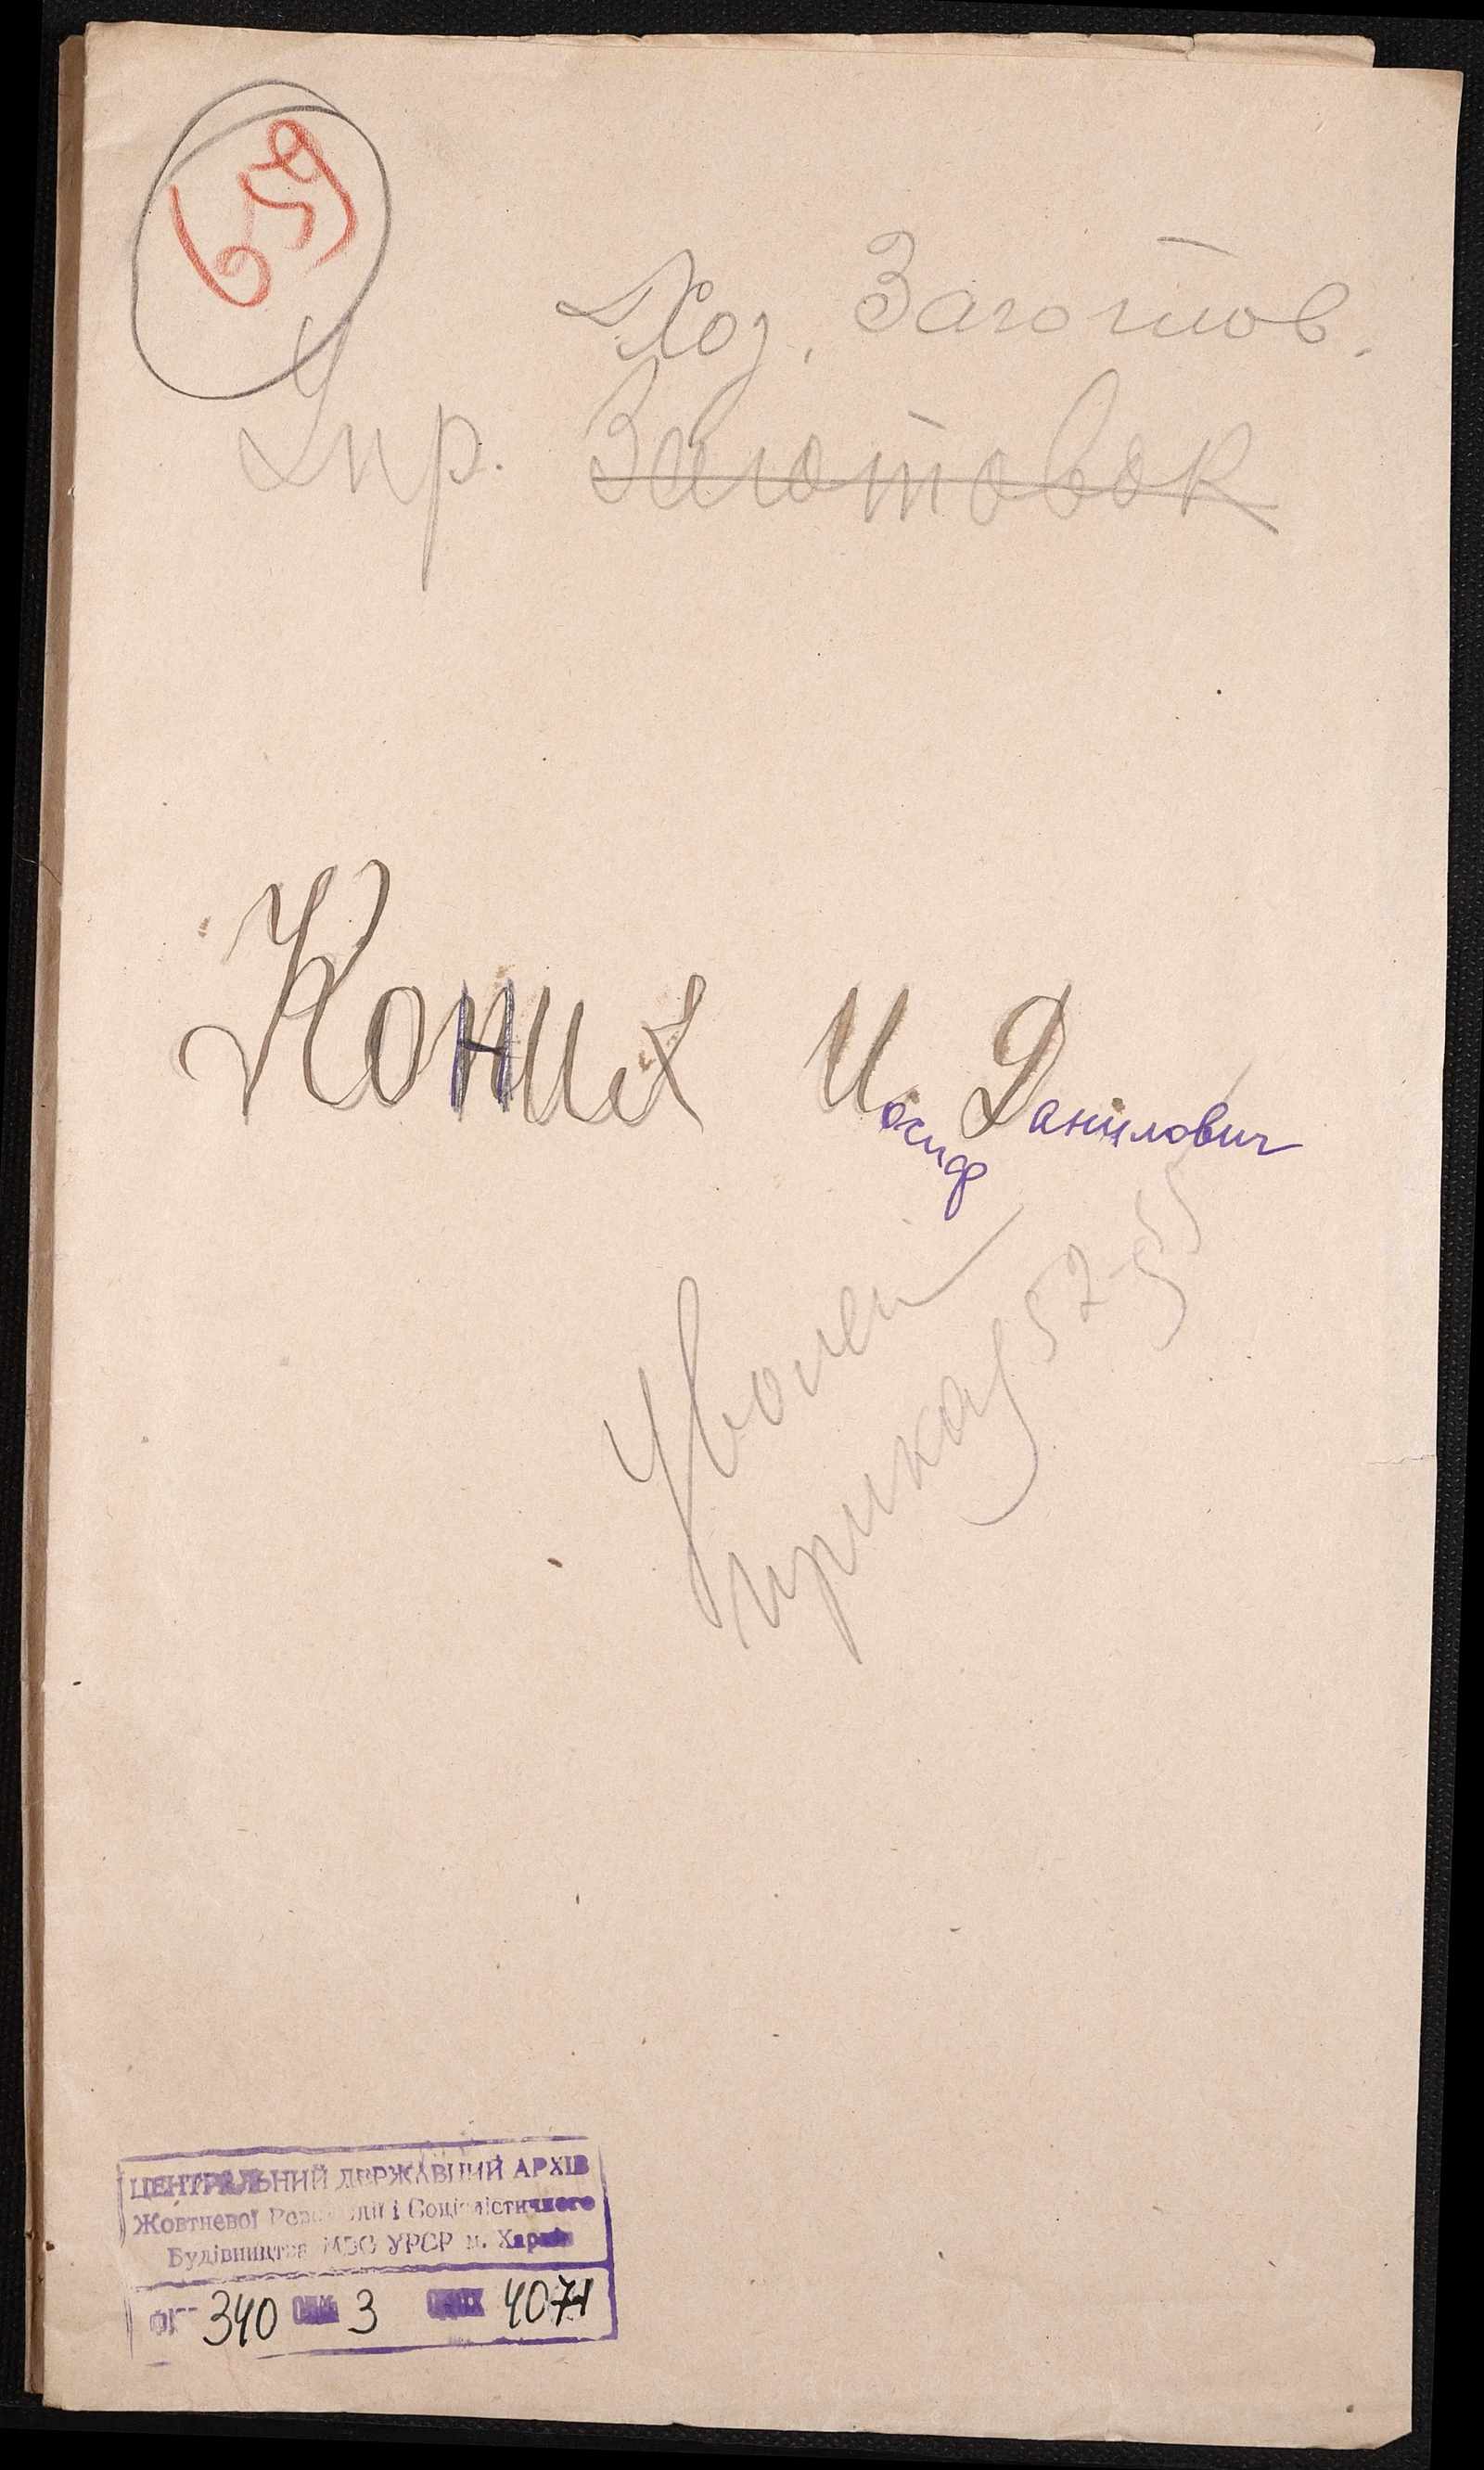 659
Хоз. Заготов.
Упр. Заготовок
Коних Иосиф Данилович
Уволен
приказ 52-§5
ЦЕНТРАЛЬНИЙ ДЕРЖАВНИЙ АРХІВ
Жовтневої Революції і Соціалістичного
Будівництва МВС УРСР м. Харків
340 3 4071